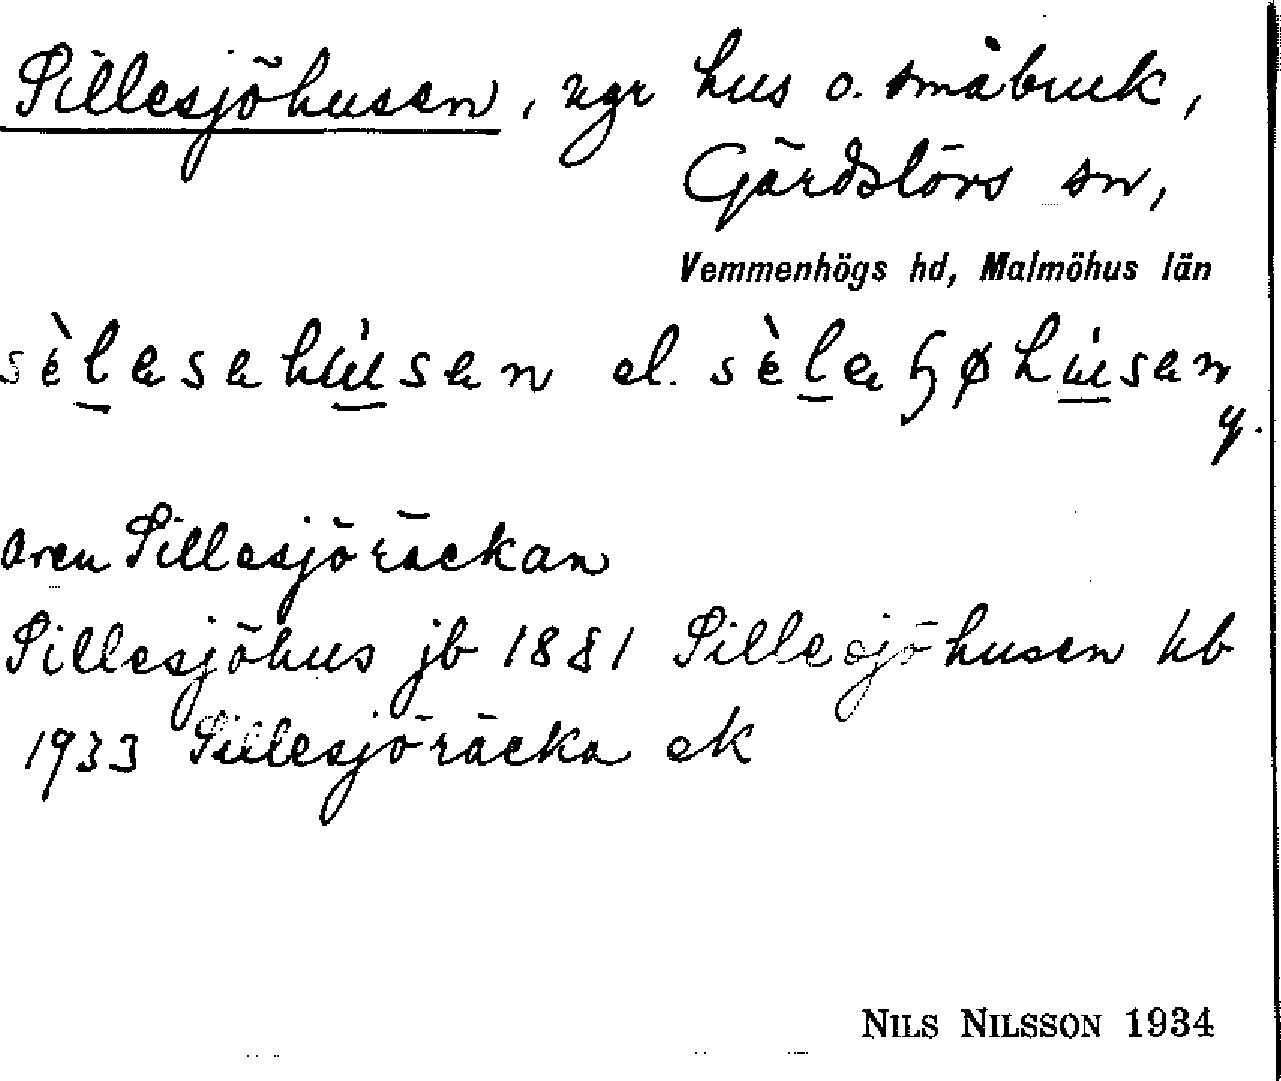 Sillesjöhusen, ngr hus o. småbruk,
Gärdslövs sn,
Vemmenhögs hd, Malmöhus län
sèlasahúsan el. sèlaɧøhúsan
y.
även Sillesjöräckan
Sillesjöhus jb 1881 Sillesjöhusen kb
1933 Sillesjöräcka ek
NILS NILSSON 1934